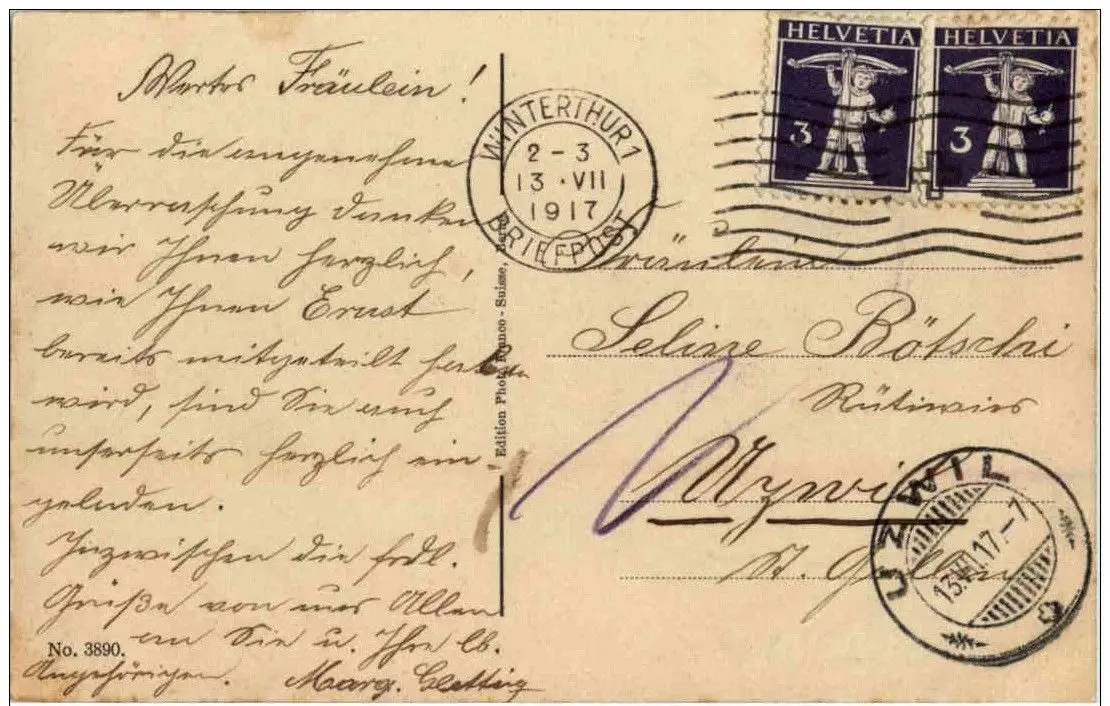 Wertes Fräulein!
Für die angenehme
Überraschung danken
wir Ihnen herzlich,
wie Ihnen Ernst
bereits mitgeteilt haben
wird, sind Sie auch
unserseits herzlich ein-
geladen.
Inzwischen die frdl.
Grüße von uns Allen
an Sie u. Ihre lb.
Angehörigen. Marg.
No. 3890.
Edition Photo Franco-Suisse, Berne
HELVETIA
3
HELVETIA
3
WINTERTHUR 1
2-3
13.VII
1917
BRIEFPOST
Fräulein
Seline Bötschi
Rütiwies
Uzwil
St. Gallen
UZWIL
13.VII.17.-7